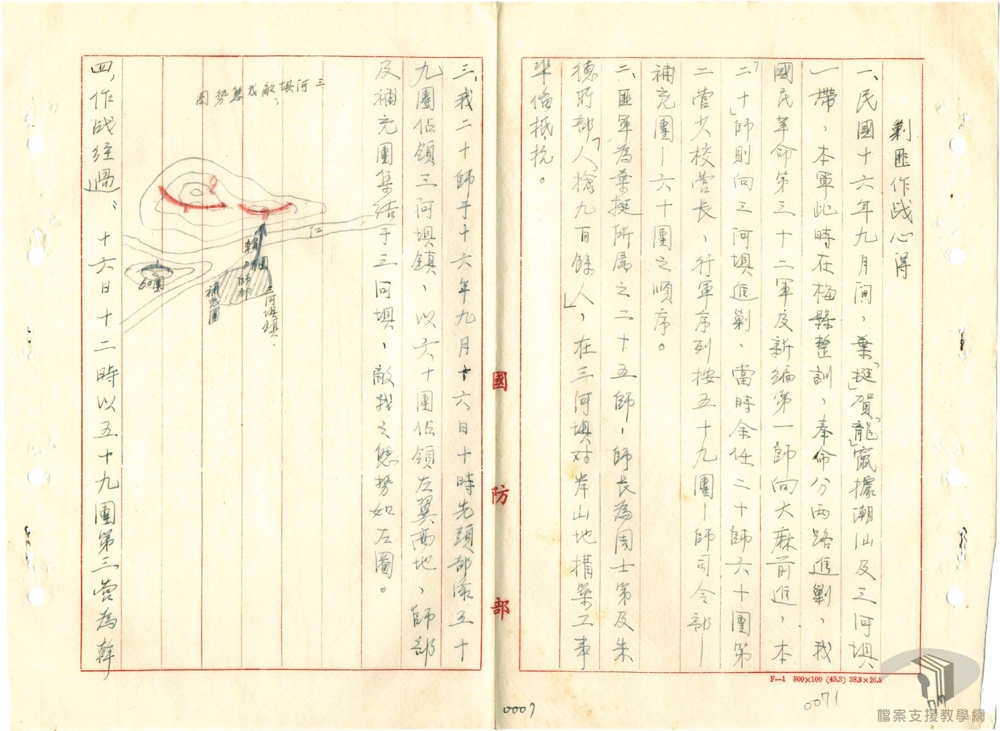 剿匪作战心得
一、民國十六年九月间，葉「挺」賀「龍」竄據潮汕及三河埧
一帶，本軍此時在梅縣整訓，奉命分两路進剿，我
國民革命第三十二軍及新编第一師向大蔴前進，本
「二十」師則向三河埧進剿，當時余任二十師六十團第
二营少校营长，行軍序列按五十九團—師司令部—
補充團—六十團之順序。
二、匪軍為葉挺所属之二十五師，師长為周士第及朱
德所部「人槍九百餘人」，在三河埧对岸山地搆築工事
準偹抵抗。
F—1 800×100 (45.3) 38.2×26.8
0071
國防部
三、我二十師于十六年九月十六日十時先頭部隊五十
九團佔領三河埧鎮，以六十團佔領左翼高地，師部
及補充團集结于三河埧，敵我之態势如左圖。
三河埧敵我態势图
江
60團
補充團
師部
三河埧鎮
四、作战经過：十六日十二時以五十九團第三营為幹
0007
檔案支援教學網